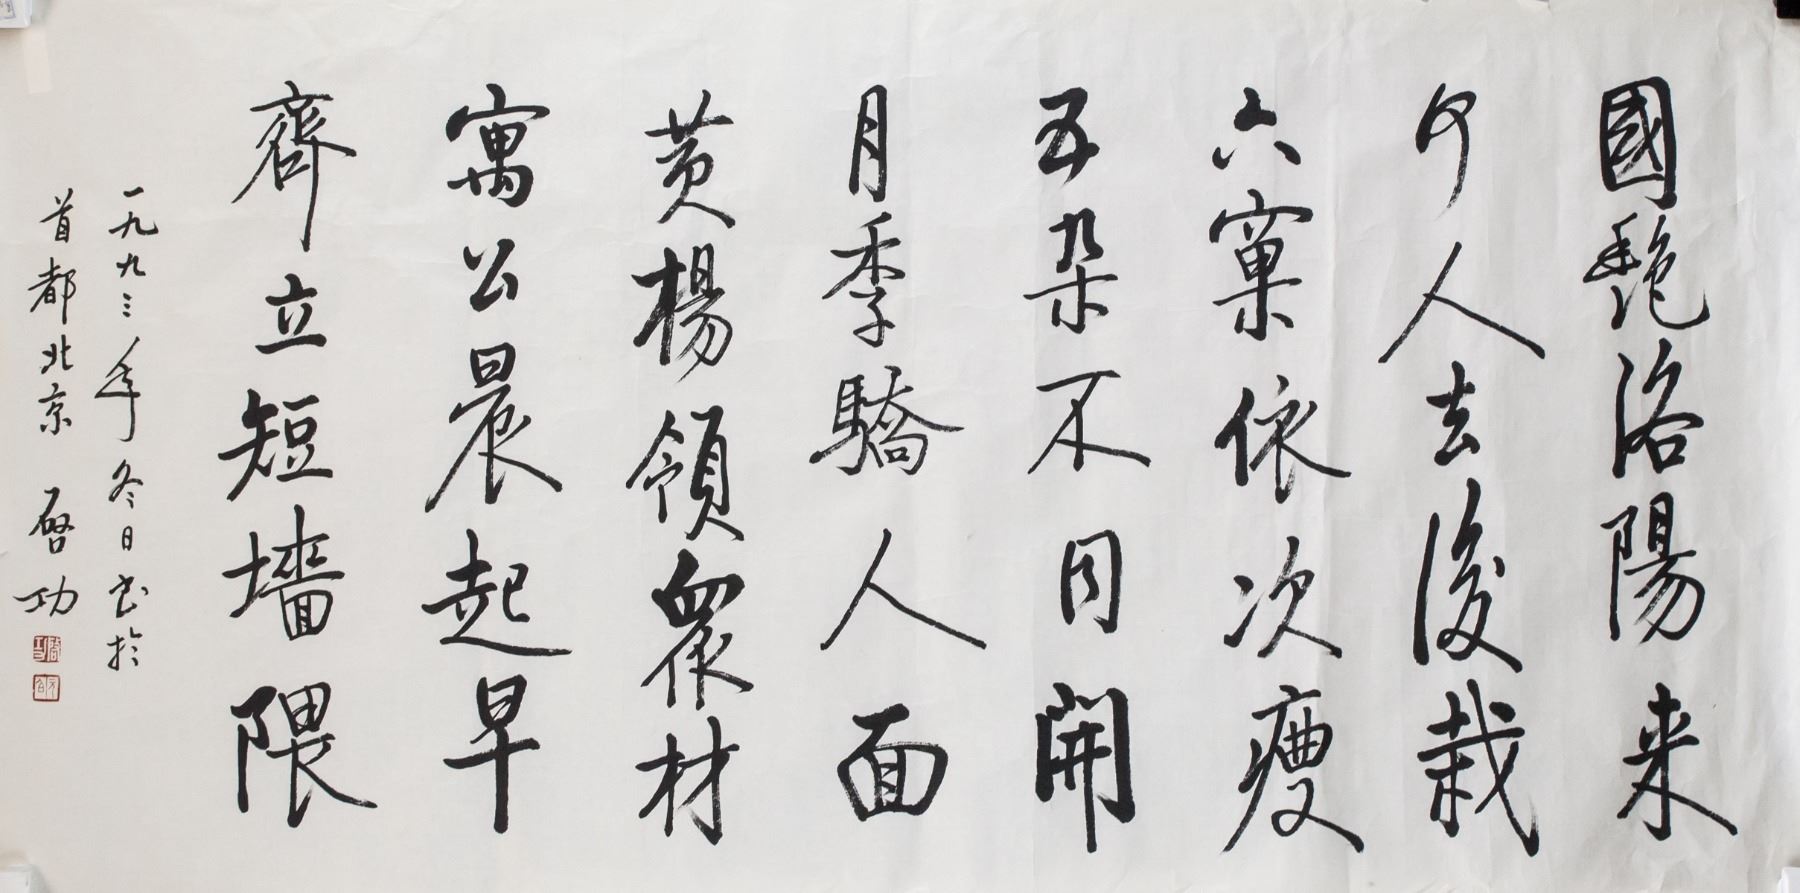 國艷洛陽来
何人去後栽
六窠依次瘦
五朵不同開
月季驕人面
黄楊領衆材
寓公晨起早
齊立短墻隈
一九九三年冬日书於
首都北京 啓功